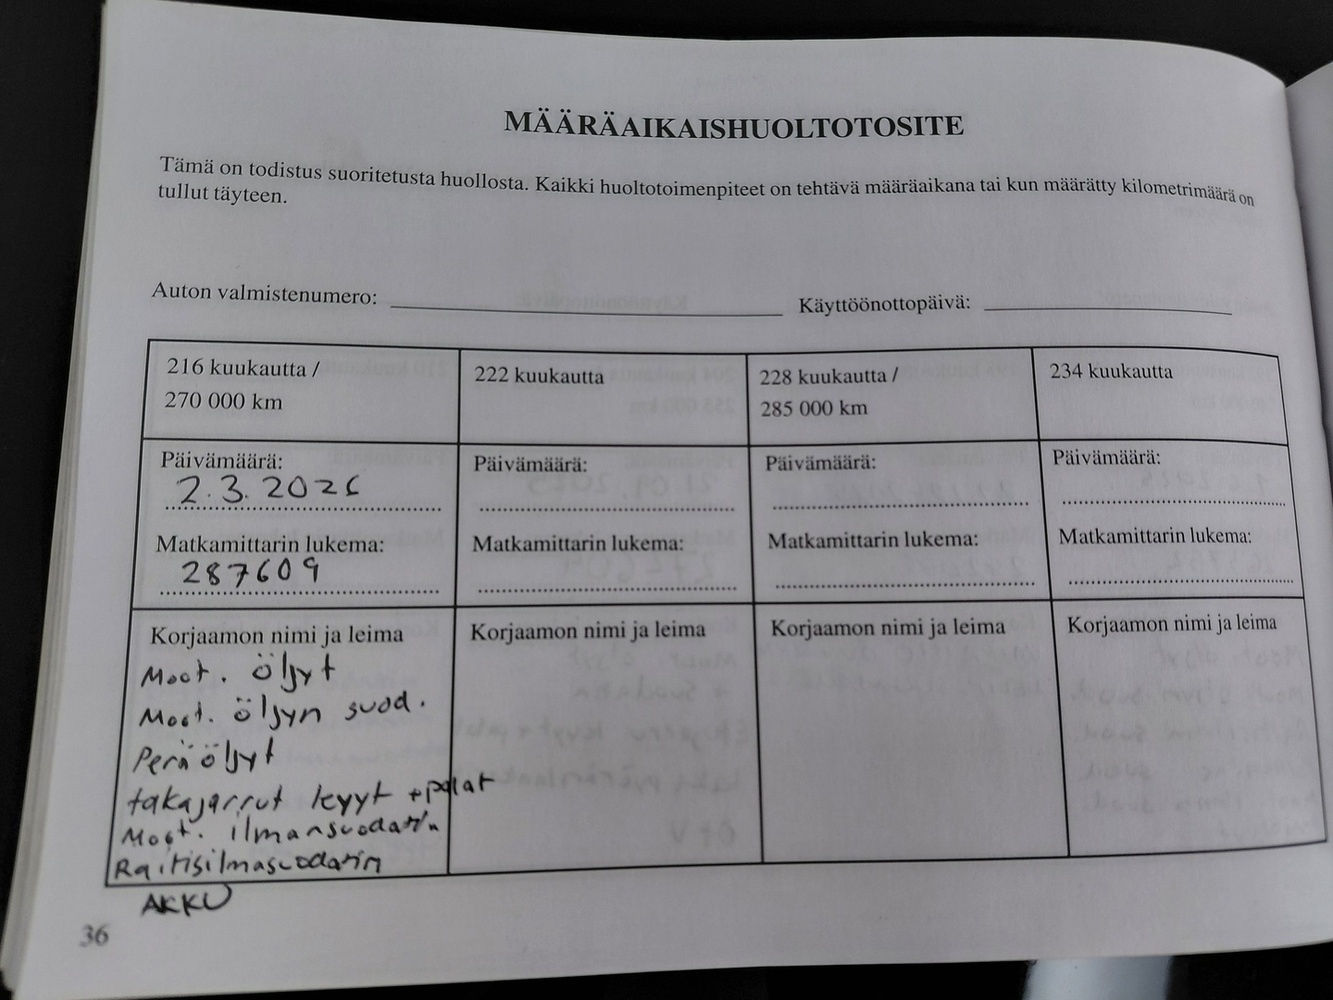 MÄÄRÄAIKAISHUOLTOTOSITE
Tämä on todistus suoritetusta huollosta. Kaikki huoltotoimenpiteet on tehtävä määräaikana tai kun määrätty kilometrimäärä on
tullut täyteen.
Auton valmistenumero:
Käyttöönottopäivä:
216 kuukautta /
270 000 km
222 kuukautta
228 kuukautta /
285 000 km
234 kuukautta
Päivämäärä:
2.3.2026
Päivämäärä:
Päivämäärä:
Päivämäärä:
Matkamittarin lukema:
287609
Matkamittarin lukema:
Matkamittarin lukema:
Matkamittarin lukema:
Korjaamon nimi ja leima
Moot. öljyt
Moot. öljyn suod.
Perä öljyt
takajarrut levyt + palat
Moot. ilmansuodatin
Raitisilmasuodatin
AKKU
Korjaamon nimi ja leima
Korjaamon nimi ja leima
Korjaamon nimi ja leima
36